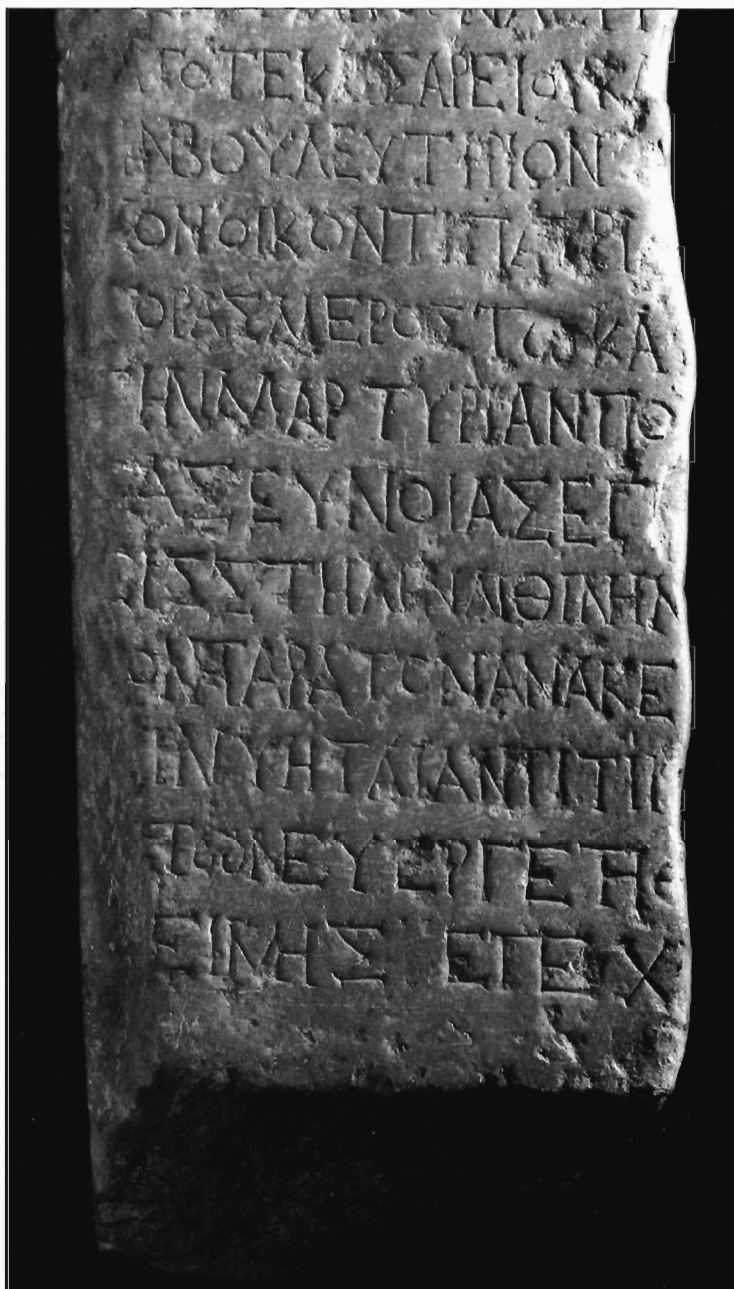 ΓΟΤΕΚ ΣΑΡΕΙΟΥΚΑ
ΝΒΟΥΛΕΥΤΗΡΙΟΝ
ΟΝΟΙΚΟΝΤΙΠΑΤΡΙ
ΟΡΑΣΜΕΡΟΣΤΩΚΑ
ΗΝΜΑΡΤΥΡΙΑΝΠΟ
ΑΣΕΥΝΟΙΑΣΕΓ
ΙΣΣΤΗΛΗΝΛΙΘΙΝΗΝ
ΟΝΠΑΡΑΤΟΝΙΑΝΑΚΕ
ΗΝΥΗΤΑΙΑΝΤΙΤΙ
ΤΩΝΕΥΕΡΓΕΤΗΘ
ΣΙΜΗΣ ΕΓΕΧ